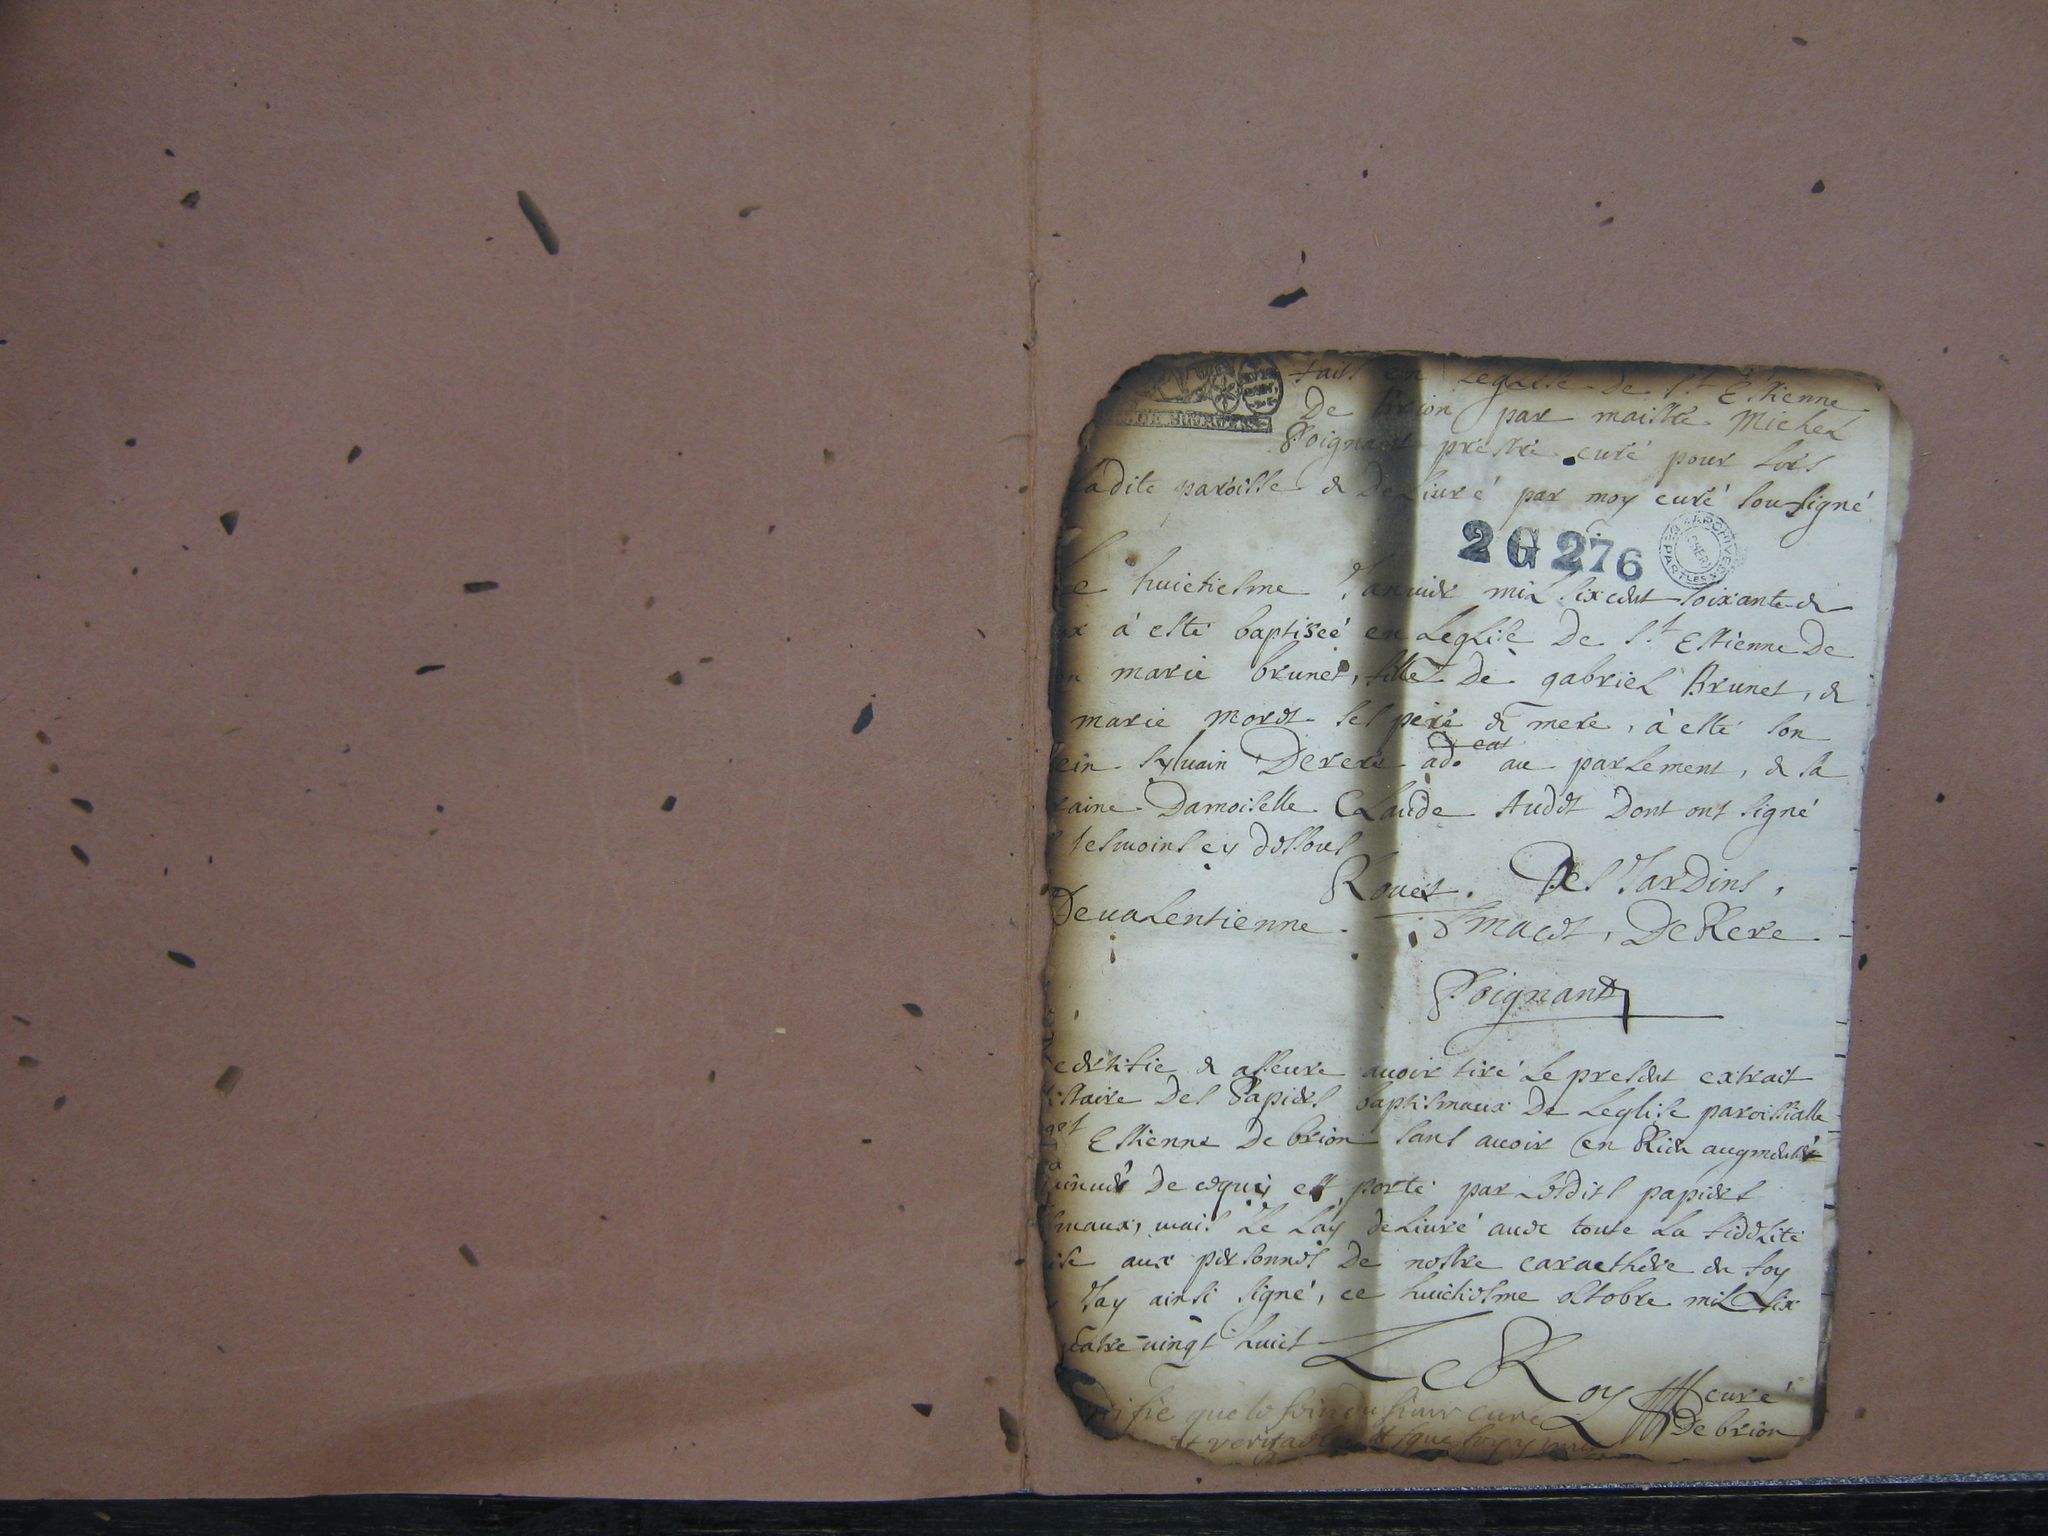 faist en Leglise de St Estienne
De Brion par maistre Michel
Poignant prestre curé pour lors
Ladite paroisse & Deliuré par moy curé soussigné
2 G 276
ARCHIVES DEPARTLES CHER
Le huictiesme Januier mil six cent soixante &
ux à esté baptiseé en Leglise De St Estienne De
on marie brunet, fille De gabriel Brunet, &
marie moret ses pere & mere, à esté son
ein syluain Derere adcat au parlement, & sa
raine Damoiselle CLaude Audet Dont ont signé
tesmoins cy dessous
Rouet. Des Jardins,
Deualentienne. macet, DeRere
Poignant
certifie & asseure auoir tiré Le present extrait
istaire Des Papiers baptismaux De Leglise paroissialle
St Estienne De brion sans auoir en Rien augmenté
minué De cequi est porté par Lesdits papiers
smaux, mais Le Lay deliuré auec toute La fidelité
ise aux personnes De nostre caracthere en foy
Jay ainsi signé, ce huictiesme octobre mil six
catre vingt huict
Le Roy curé
De brion
tifie que le sieur curé
et veritable et que foy y